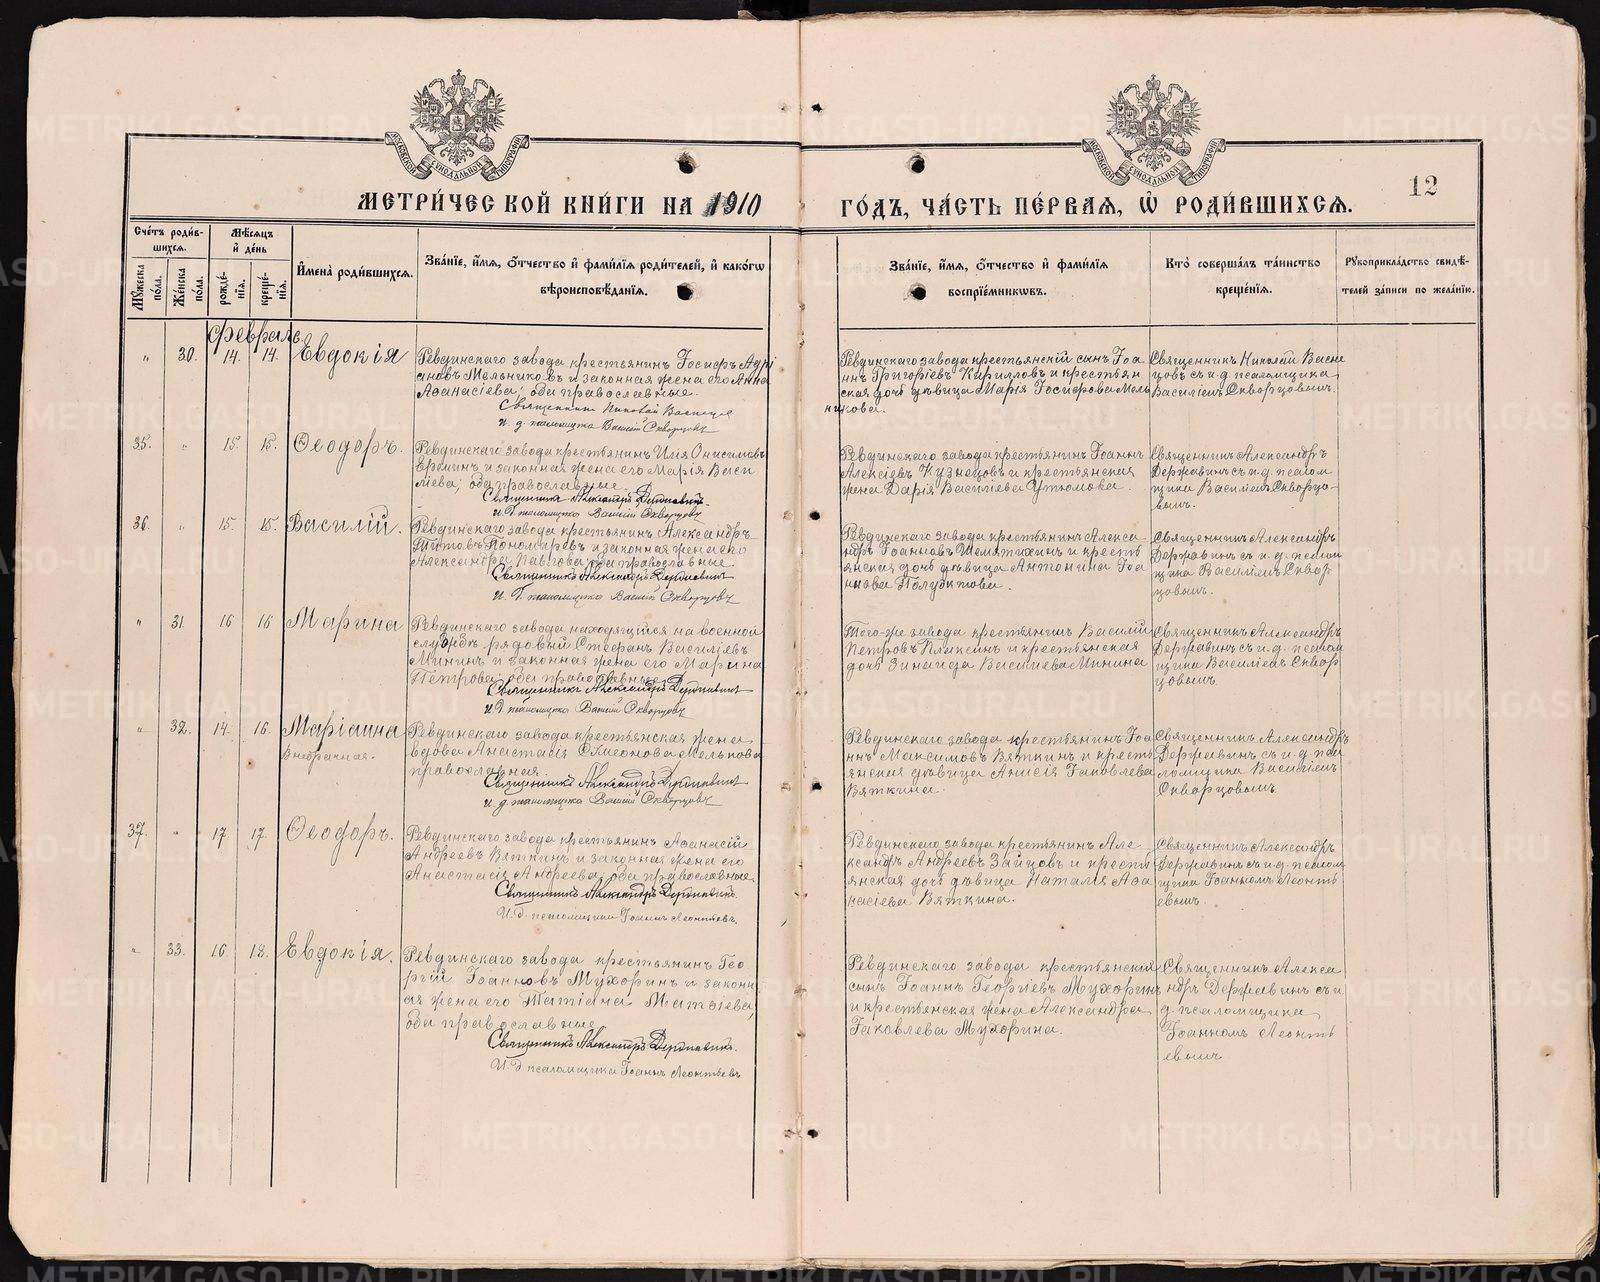 МЕТРИ́ЧЕСКОЙ КНИ́ГИ НА 1910 ГО́ДЪ, ЧА́СТЬ ПЕ́РВАЯ, Ѡ РОДИ́ВШИХСЯ.
12
Сче́тъ роди́в-
шихся.
Му́жеска по́ла.
Же́нска по́ла.
Мѣ́сяцъ
и́ де́нь
рожде́-
нїя.
креще́-
нїя.
И́мена̀ роди́вшихся.
Зва́нїе, и́мя, о́тчество и́ фами́лїя роди́телей, и́ како́гѡ
вѣроисповѣ́данїя.
Зва́нїе, и́мя, о́тчество и́ фами́лїя
воспрїе́мникѡвъ.
Кто̀ соверша́лъ та́инство
креще́нїя.
Рукоприкла́дство свидѣ́-
телей за́писи по жела́нїю.
февраль.
" 30. 14. 14. Евдокія
Ревдинскаго завода крестьянинъ Іосифъ Адрі
ановъ Мельниковъ и законная жена его Анна
Аѳанасіева, оба православные.
Священникъ Николай Васнецовъ
и. д. псаломщика Василій Скворцовъ
Ревдинскаго завода крестьянскій сынъ Іоа
ннъ Григоріевъ Кирилловъ и крестьян
ская дочь дѣвица Марія Іосифова Мель
никова.
Священникъ Николай Васне
цовъ съ и. д. псаломщика
Василіемъ Скворцовымъ.
35. " 15. 15. Ѳеодоръ.
Ревдинскаго завода крестьянинъ Илія Онисимовъ
и законная жена его Марія Васи
ліева, оба православные.
Священникъ Александръ Державинъ
и. д. псаломщика Василій Скворцовъ
Ревдинскаго завода крестьянинъ Іоаннъ
Алексіевъ Кузнецовъ и крестьянская
жена Дарія Василіева Утюмова.
Священникъ Александръ
Державинъ съ и. д. псалом
щика Василіемъ Скворцо-
вымъ.
36. " 15. 15. Василій.
Ревдинскаго завода крестьянинъ Александръ
Титовъ Пономаревъ и законная жена его
Александра Павлова, оба православные.
Священникъ Александръ Державинъ
и. д. псаломщика Василій Скворцовъ
Ревдинскаго завода крестьянинъ Алекса-
ндръ Іоанновъ Шемятихинъ и кресть
янская дочь дѣвица Антонина Іоа
ннова Полуэктова.
Священникъ Александръ
Державинъ съ и. д. псалом
щика Василіемъ Сквор
цовымъ.
" 31. 16 16 Марина
Ревдинскаго завода находящійся на военной
службѣ рядовый Стефанъ Василіевъ
Мининъ и законная жена его Марина
Петрова, оба православные.
Священникъ Александръ Державинъ
и. д. псаломщика Василій Скворцовъ
Того-же завода крестьянинъ Василій
Петровъ Плаксинъ и крестьянская
дочь Зинаида Василіева Минина
Священникъ Александръ
Державинъ съ и. д. псалом
щика Василіемъ Сквор
цовымъ
" 32. 14. 16. Маріанна
Внебрачная.
Ревдинскаго завода крестьянская жена
вдова Анастасія Симеонова Мелькова
православная.
Священникъ Александръ Державинъ
и. д. псаломщика Василій Скворцовъ
Ревдинскаго завода крестьянинъ Іоа
ннъ Максимовъ Вяткинъ и кресть
янская дѣвица Анисія Іаковлева
Вяткина.
Священникъ Александръ
Державинъ съ и. д. пса
ломщика Василіемъ
Скворцовымъ
37. " 17 17. Ѳеодоръ.
Ревдинскаго завода крестьянинъ Аѳанасій
Андреевъ Вяткинъ и законная жена его
Анастасія Андреева, оба православные.
Священникъ Александръ Державинъ.
И. д. псаломщика Іоаннъ Леонтьевъ.
Ревдинскаго завода крестьянинъ Але-
ксандръ Андреевъ Зайцовъ и кресть
янская дочь дѣвица Наталія Аѳа
насіева Вяткина.
Священникъ Александръ
Державинъ съ и. д. псалом
щика Іоанномъ Леонть
евымъ.
" 33. 16 18. Евдокія.
Ревдинскаго завода крестьянинъ Гео
ргій Іоанновъ Мухоринъ и законн
ая жена его Татіана Матѳіева,
оба православные.
Священникъ Александръ Державинъ.
И. д. псаломщика Іоаннъ Леонтьевъ
Ревдинскаго завода крестьянскій
сынъ Іоаннъ Георгіевъ Мухоринъ
и крестьянская жена Александра
Іаковлева Мухорина.
Священникъ Алекса
ндръ Державинъ съ и
д. псаломщика
Іоанномъ Леонть
евымъ
METRIKI.GASO-URAL.RU